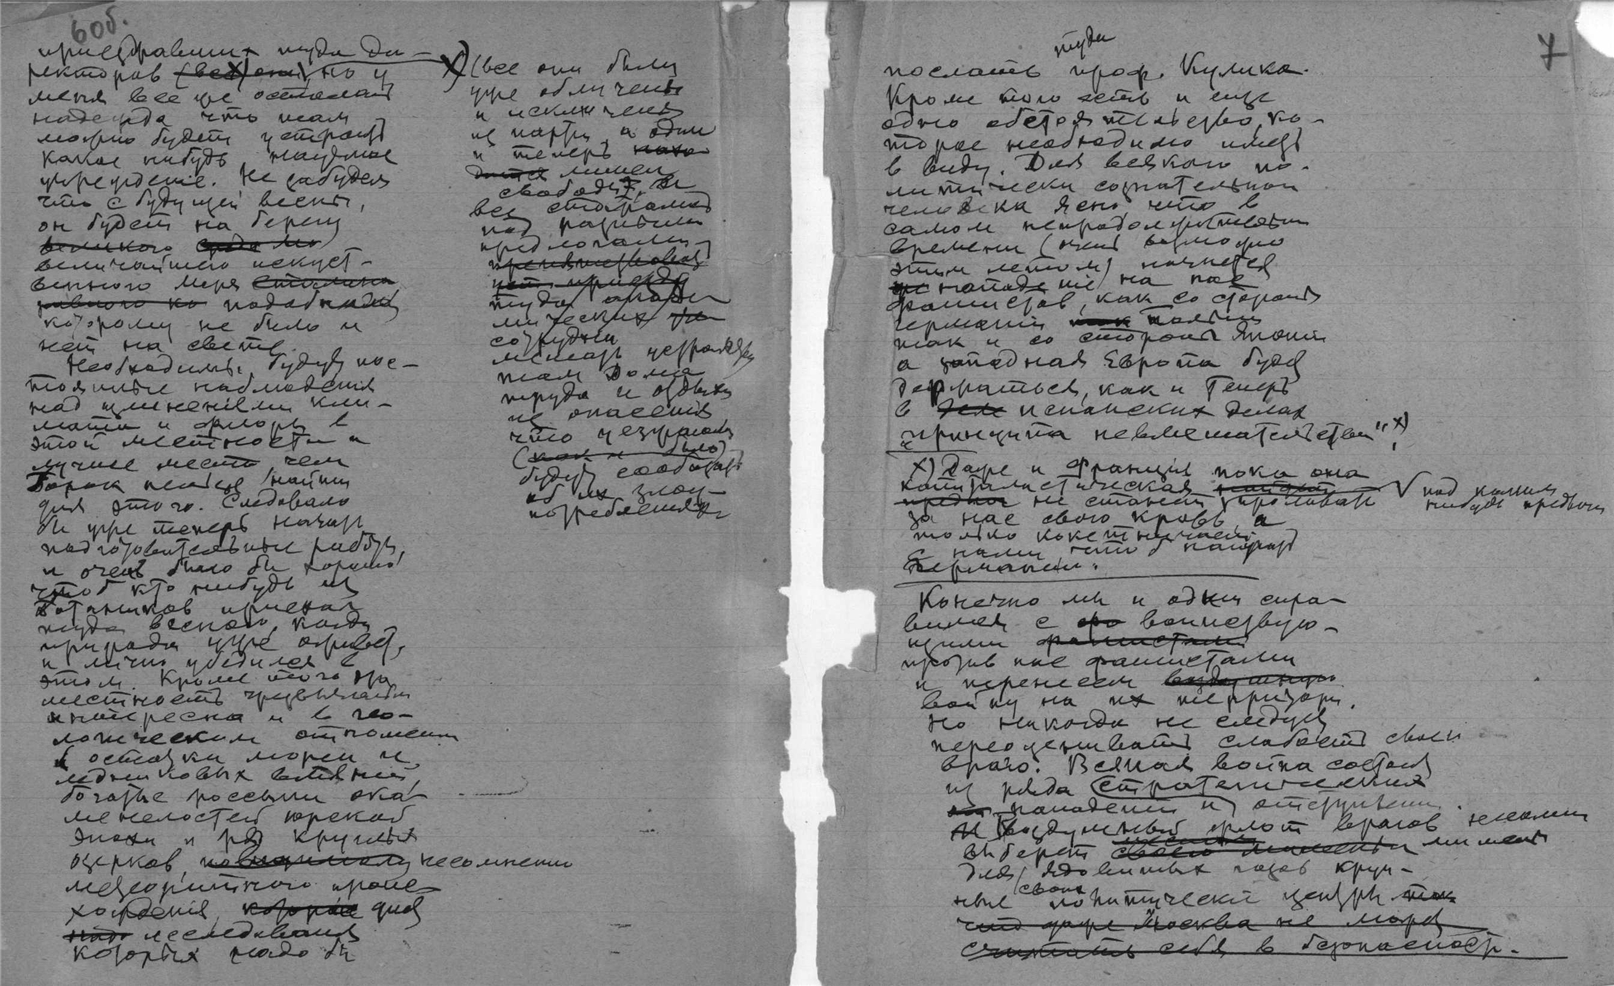 60б.
приезжавших туда ди-
ректоров (все они), но у
меня все же осталась
надежда что там
можно будет устроить
какое нибудь научное
учреждение. Не забудем
что с будущей весны,
он будет на берегу
великого
величайшего искуст-
венного моря
подобного
которому не было и
нет на свете.
Необходимы будут пос-
тоянные наблюдения
над изменениями кли-
мата и флоры в
этой местности и
лучше место чем
Борок нельзя найти
для этого. Следовало
бы уже теперь начать
подготовительные работы,
и очень было бы хорошо
чтоб кто нибудь из
ботаников приехал
туда весною, когда
природа уже оживет,
и лично убедился в
этом. Кроме того эта
местность чрезвычайно
интересна и в гео-
логическом отношении
остатки морен и
ледниковых
богатые россыпи ока-
менелостей юрской
эпохи и ряд круглых
озерков, несомненно
метеоритного проис-
хождения, для
исследования
которых надо бы
х) (все они были
уже обличены
и исключены
из партии, а один
и теперь
лишен
свободы),
все старания
под разными
предлогами
туда
сотрудни-
там Дома
труда и отдыха
из опасения
что
(как и было)
будут сообщать
об их злоу-
потреблениях
7
туда
послать проф. Кулика.
Кроме того есть и еще
одно обстоятельство, ко-
торое необходимо иметь
в виду. Для всякого по-
литически сознательного
человека ясно что в
самом непродолжительном
времени (очень возможно
этим летом) начнется
нападение на нас
фашистов, как со стороны
Германии
так и со стороны Японии
а западная Европа будет
держаться, как и теперь
в испанских делах
„принципа невмешательства" х)
х) Даже и Франция пока она
капиталистическая под каким
нибудь предлогом
не станет проливать
за нас свою кровь, а
только кокетничает
с нами, чтоб напугать
Германию.
Конечно мы и одни спра-
вимся с воинствую-
щими
против нас фашистами
и перенесем
войну на их территорию.
Но никогда не следует
переоценивать слабость своего
врага. Всякая война состоит
из ряда стратегических
нападений и отступлений.
Воздушный флот врагов
выберет
для ядовитых газов круп-
ные политические центры
что даже Москва не может
считать себя в безопасности.